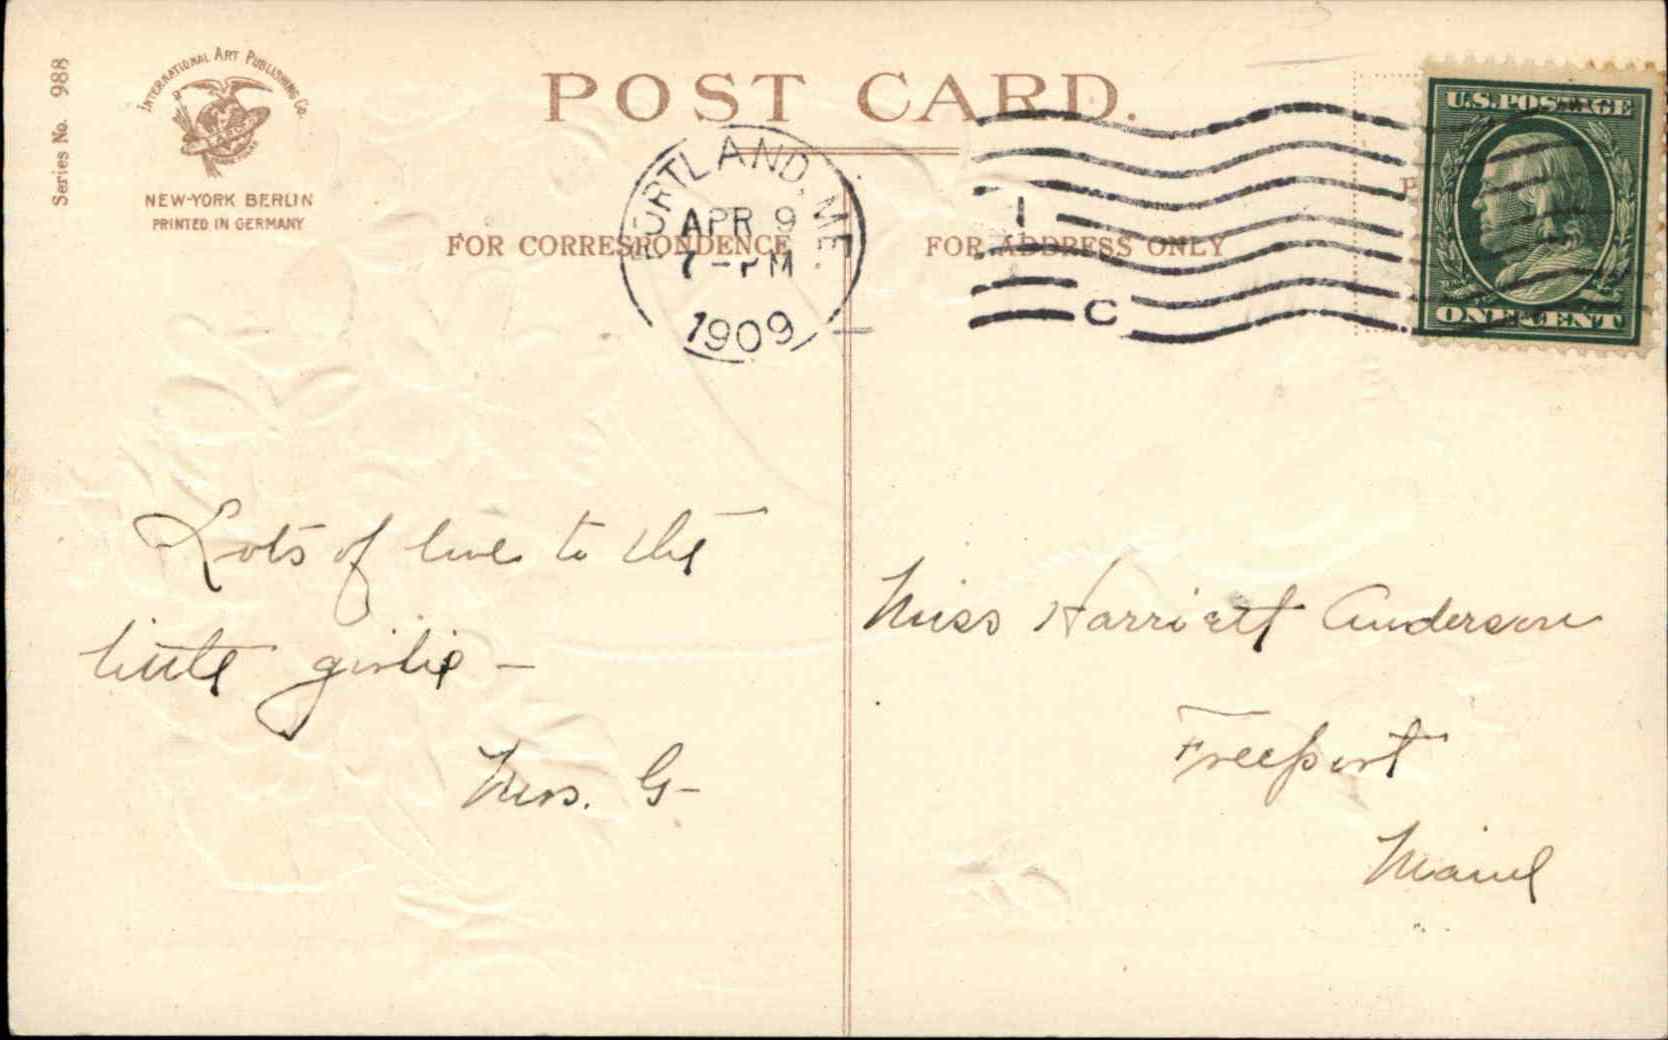 Series No. 988
INTERNATIONAL ART PUBLISHING CO.
NEW-YORK BERLIN
PRINTED IN GERMANY
POST CARD.
FOR CORRESPONDENCE
FOR ADDRESS ONLY
PORTLAND, ME.
APR 9
7-PM
1909
1
C
U.S. POSTAGE
ONE CENT
Lots of love to the
little girlie -
Mrs. G-
Miss Harriett Anderson
Freeport
Maine